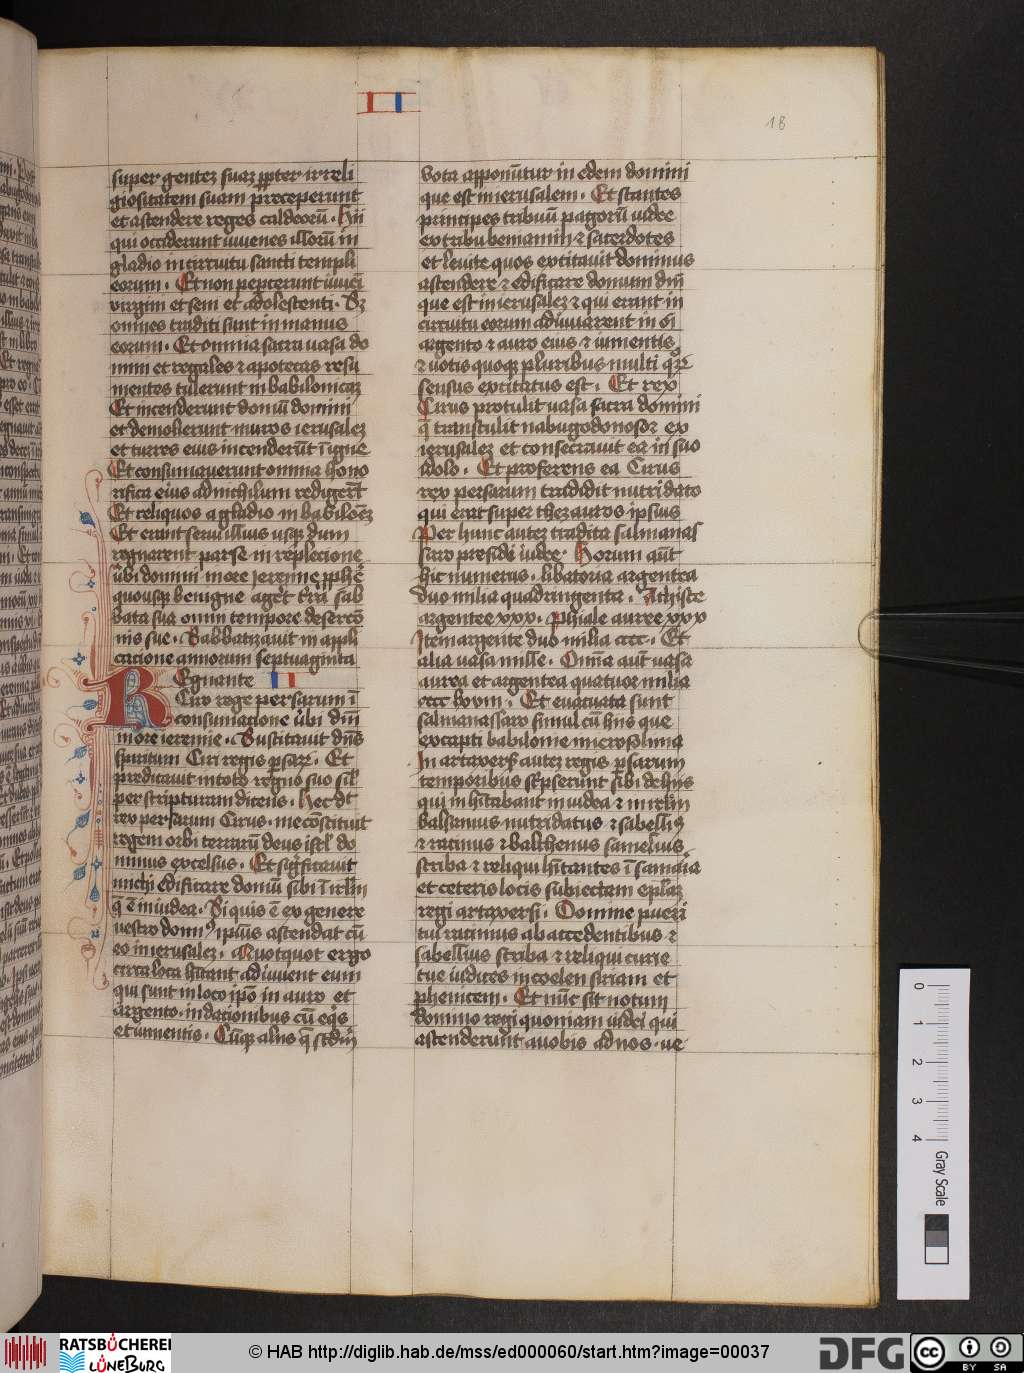 II
18
super gentez suaz ꝓpter irreli
giositatem suam preceperunt
et astendere reges caldeorū. Hii
qui occiderunt iuvenes illorū in
gladio in circuitu sancti templi
eorum. Et non pepcerunt iuveī
virgini et seni et adolestenti. Sz
omnes traditi sunt in manus
eorum. Et omnia sacra vasa do
mini et regales ⁊ apotecas resu
mentes tulerunt in babilonicaz
Et incenderunt domū domini
et demolierunt muros ierusalez
et turres eius incenderūt ī igne
Et consumaverunt omnia hono
rifica eius ad nichilum redigert̄
Et reliquos a gladio in babiloēz
Et erant servi illius usqꝫ dum
regnarent parse in replecione
ūbi domini more ieremie ꝓphē
quousqꝫ benigne aget tr̄ra sab
bata sua omni tempore desercō
nis sue. Sabbatizavit in appli
catione annorum septuaginta
Regnante II
Ciro rege persarum ī
consumacione ūbi dnī
more ieremie. Sustitavit dn̄s
spiritum Ciri regis psaꝝ. Et
predicavit in toto regno suo sil̄
per scripturam dicens. Hec dt̄
rex persarum Cirus. me cōstituit
regem orbi terrarū deus isrl̄ do
minus excelsus. Et significavit
michi edificare domū sibi ī irlm̄
q̄ ē in iudea. Si quis ē ex genere
vestro domn9 ipsius astendat cū
eo in ierusalez. Quotquot ergo
circa loca hītant adiuvent eum
qui sunt in loco ipō in auro et
argento. in dationibus cū eqͥs
et iumentis. Cūqꝫ aliis q̄ scdm̄
vota apponūtur in edem domini
que est in ierusalem. Et stantes
principes tribuū pagorū iudee
ex tribu beniamin ⁊ sacerdotes
et levite quos excitavit dominus
astendere ⁊ edificare domum dnī
que est in ierusalez ⁊ qui erant in
circuitu eorum adiuvarent in oī
argento ⁊ auro eius ⁊ iumentis
⁊ votis quoqꝫ pluribus multi qͦꝝ
sensus excitatus est. Et rex
Cirus protulit vasa sacra domini
q̄ transtulit nabugodonosor ex
ierusalez et consecravit ea in suo
idolo. Et proferens ea Cirus
rex persarum tradidit mitridato
qui erat super thezauros ipsius
Per hunc autez tradita salmanas
saro presidi iudee. Horum aūt
hic numerus. libatoria argentea
duo milia quadringenta. Athiste
argentee xxx. Phiale auree xxx
Item argente duo milia cccc. Et
alia vasa mille. Omīa aūt vasa
aurea et argentea quatuor milia
cccc lxviii. Et evacuata sunt
salmanassaro simul cū hiis que
ex capti babilonie in ierosolima
In artaxers̄ autez regis psarum
temporibus scpserunt sibi de hiis
qui in hītabant in iudea ⁊ in irlm̄
balsamus mitridatus ⁊ sabelli9
⁊ ratimus ⁊ balthenus samelius
scriba ⁊ reliqui hītantes ī samaīa
et ceteris locis subiectam epl̄az
regi artaxersi. Domine pueri
tui ratimus ab accedentibus ⁊
sabellius scriba ⁊ reliqui curie
tue iudices in coelen siriam et
phenicem. Et nūc sit notum
domino regi quoniam iudei qui
astenderunt a vobis ad nos. ve
0 1 2 3 4
Gray Scale
RATSBÜCHEREI
LÜNEBURG
© HAB http://diglib.hab.de/mss/ed000060/start.htm?image=00037
DFG
cc
BY SA